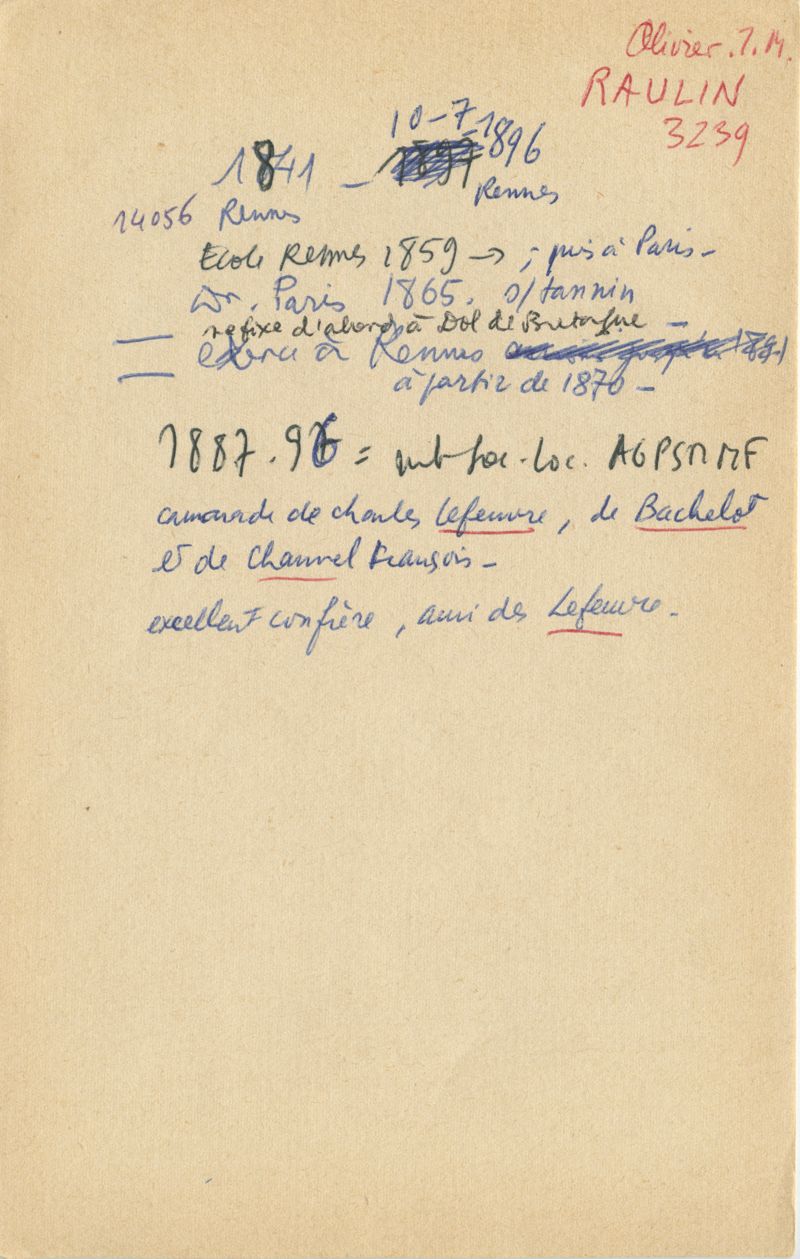 Olivier. J. M.
RAULIN
3239
10-7-1896
1841 —
Rennes
14056 Rennes
Ecole Rennes 1859 → ; puis à Paris —
Dr. Paris 1865. s/tannin
se fixe d'abord à Dol de Bretagne —
— exerce à Rennes
— à partir de 1870 —
1887.96 = mb soc. loc. AGPSMMF
camarade de charles Lefeuvre, de Bachelot
et de Chauvel François —
excellent confrère, ami des Lefeuvre —